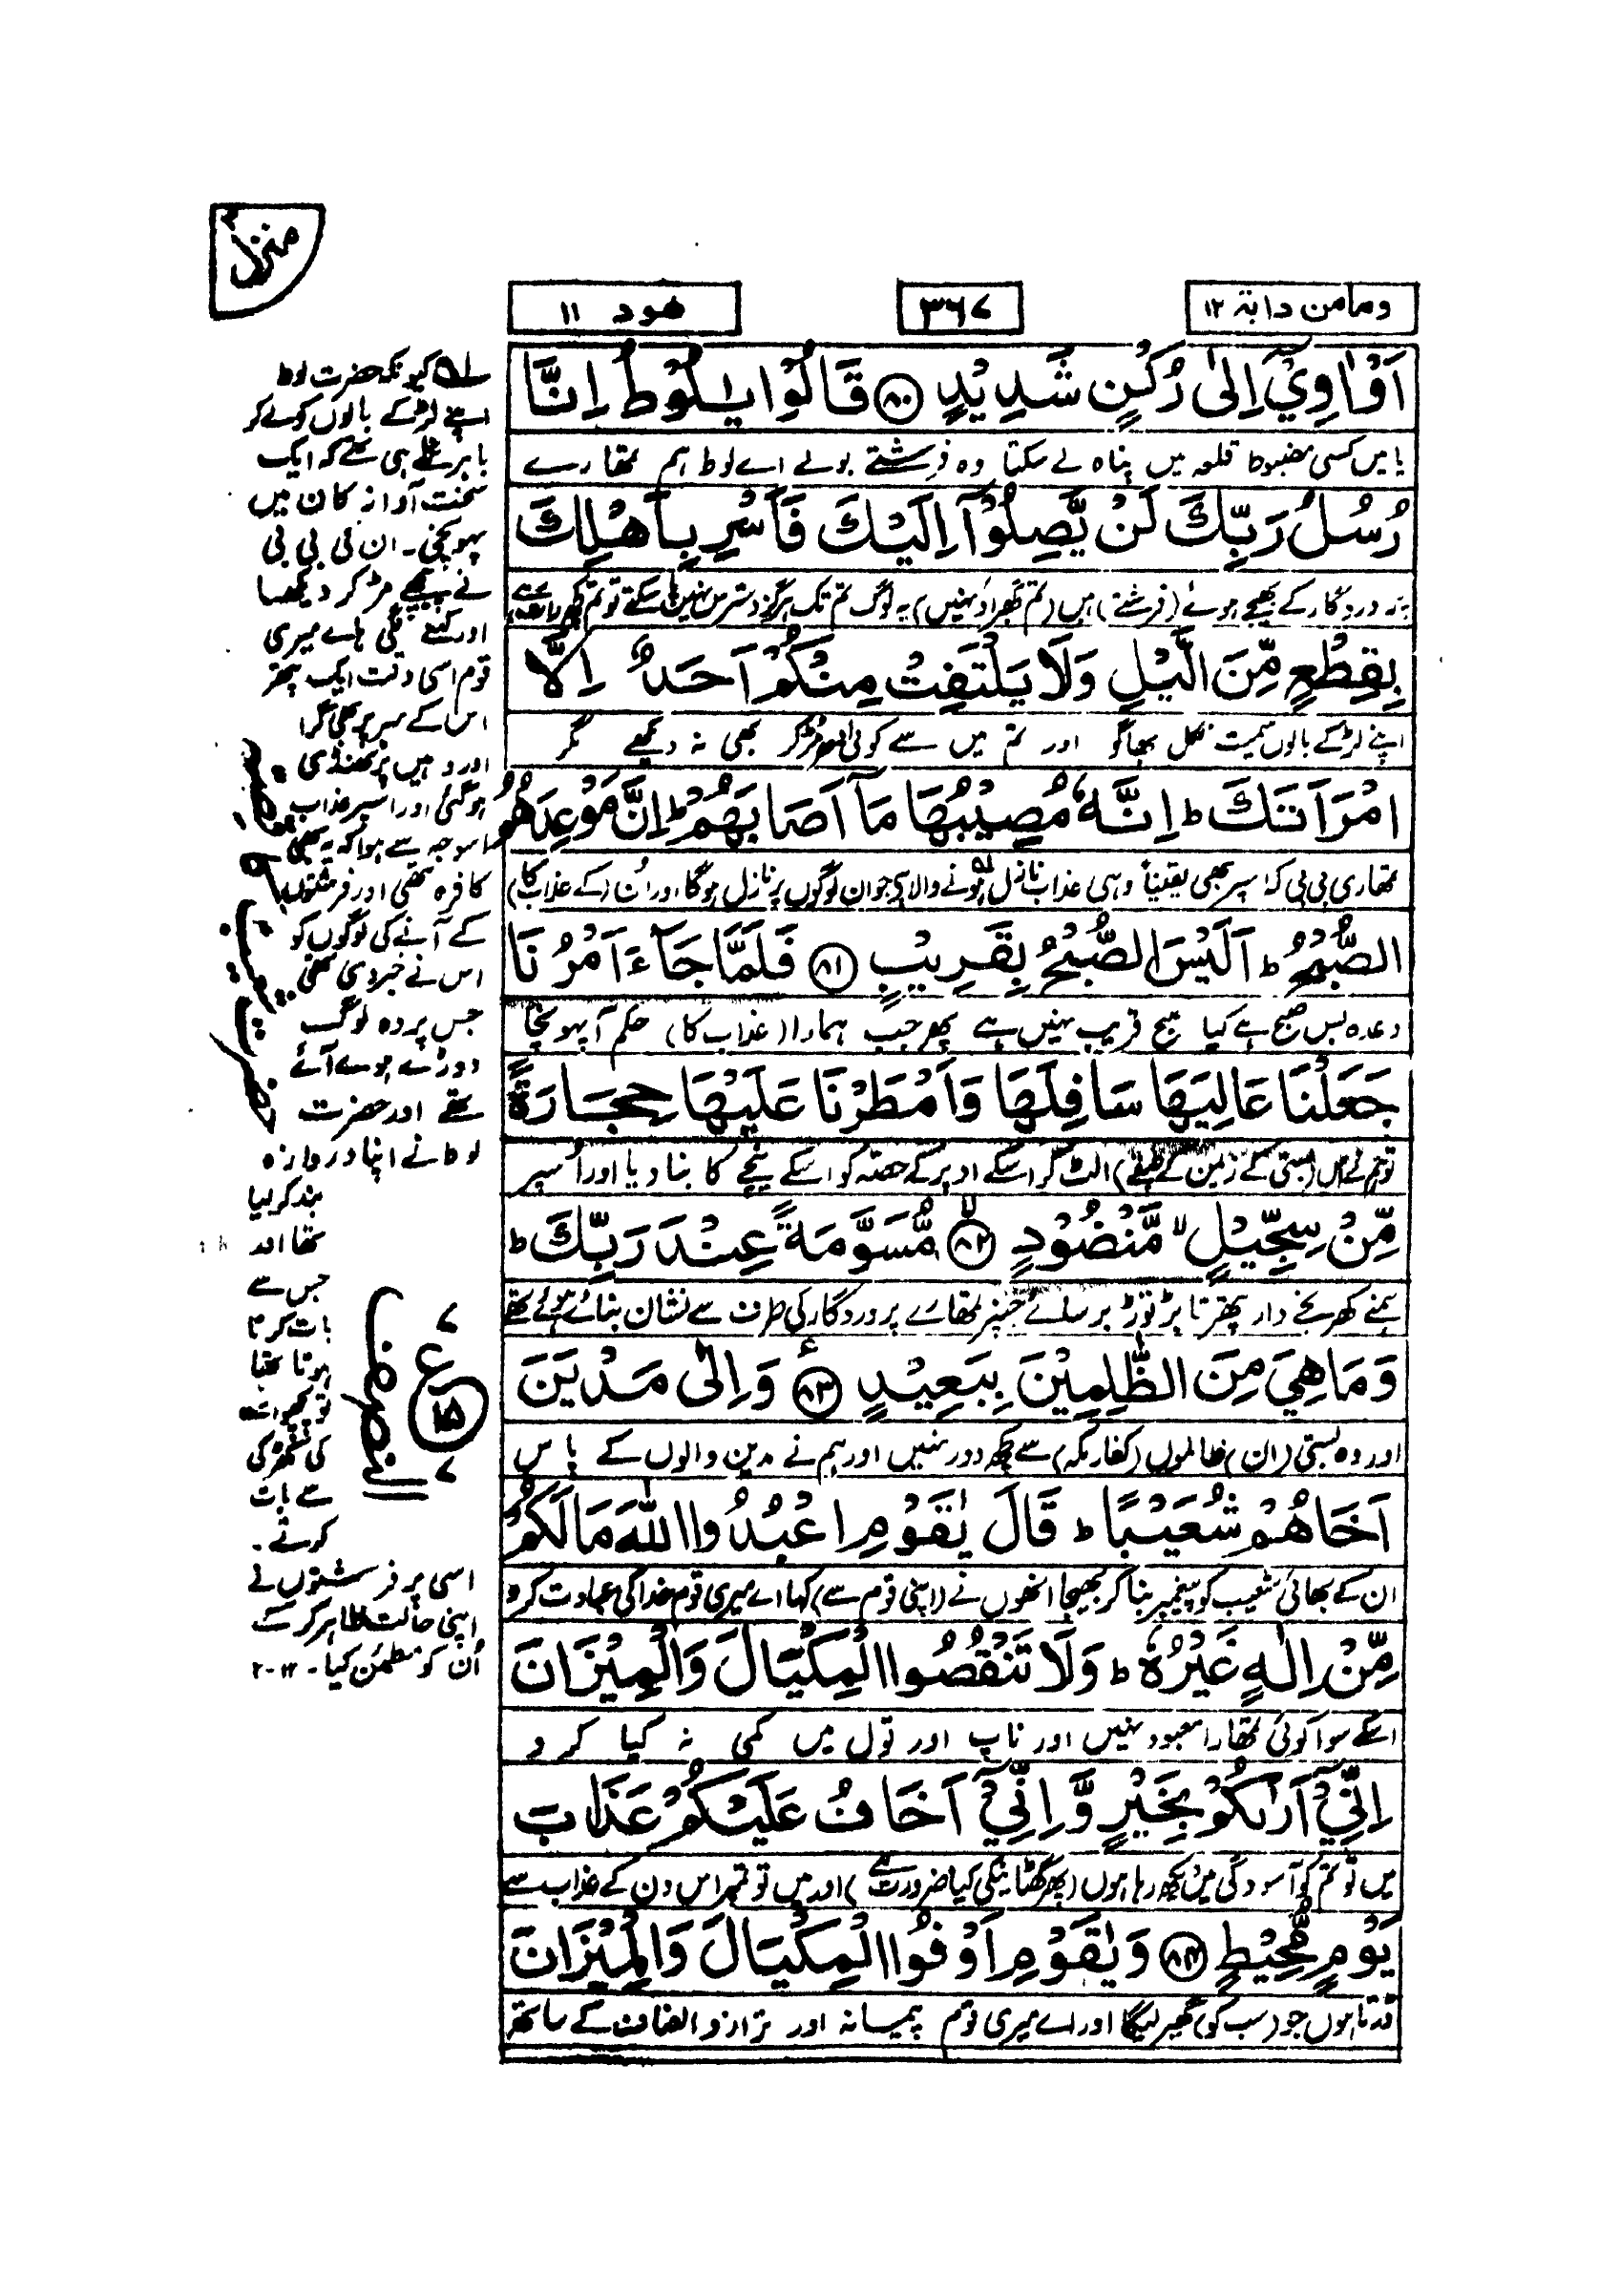 منزل ۳
ومامن دابة ۱۲
۳۶۷
هود ۱۱
اَوْاٰوِيْٓ اِلٰى رُكْنٍ شَدِيْدٍ ﴿۸۰﴾ قَالُوْا يٰلُوْطُ اِنَّا
یا میں کسی مضبوط قلعہ میں پناہ لے سکتا وہ فرشتے بولے اے لوط ہم تمھارے
رُسُلُ رَبِّكَ لَنْ يَّصِلُوْٓا اِلَيْكَ فَاَسْرِ بِاَهْلِكَ
پروردگار کے بھیجے ہوئے (فرشتے) ہیں (تم گھبراؤ نہیں) یہ لوگ تم تک ہرگز دسترس نہیں پا سکتے تو تم کچھ رات رہے
بِقِطْعٍ مِّنَ الَّيْلِ وَلَا يَلْتَفِتْ مِنْكُمْ اَحَدٌ اِلَّا
اپنے لڑکے بالوں سمیت نکل بھاگو اور تم میں سے کوئی مڑکر بھی نہ دیکھے مگر
امْرَاَتَكَ ؕ اِنَّهٗ مُصِيْبُهَا مَآ اَصَابَهُمْ ؕ اِنَّ مَوْعِدَهُمُ
تمھاری بی بی کہ اسپر بھی یقیناً وہی عذاب نازل ہونے والا ہے جو ان لوگوں پر نازل ہوگا اور اُن (کے عذاب کا)
الصُّبْحُ ؕ اَلَيْسَ الصُّبْحُ بِقَرِيْبٍ ﴿۸۱﴾ فَلَمَّا جَآءَ اَمْرُنَا
وعدہ بس صبح ہے کیا صبح قریب نہیں ہے پھر جب ہمارا (عذاب کا) حکم آپہونچا
جَعَلْنَا عَالِيَهَا سَافِلَهَا وَاَمْطَرْنَا عَلَيْهَا حِجَارَةً
تو ہم نے (بستی کے زمین کے طبقے) الٹ کر اسکے اوپر کے حصّہ کو اسکے نیچے کا بنا دیا اور اُسپر
مِّنْ سِجِّيْلٍ ۙ مَّنْضُوْدٍ ﴿۸۲﴾ مُّسَوَّمَةً عِنْدَ رَبِّكَ ؕ
ہمنے کھرنجے دار پتھر تابڑ توڑ برسائے جنپر تمھارے پروردگار کی طرف سے نشان بنائے ہوئے تھے
وَمَا هِيَ مِنَ الظّٰلِمِيْنَ بِبَعِيْدٍ ﴿۸۳﴾ وَاِلٰى مَدْيَنَ
اور وہ بستی (ان) ظالموں (کفار مکہ) سے کچھ دور نہیں اور ہم نے مدین والوں کے پاس
اَخَاهُمْ شُعَيْبًا ؕ قَالَ يٰقَوْمِ اعْبُدُوا اللّٰهَ مَا لَكُمْ
ان کے بھائی شعیب کو پیغمبر بنا کر بھیجا انھوں نے (اپنی قوم سے) کہا اے میری قوم خدا کی عبادت کرو
مِّنْ اِلٰهٍ غَيْرُهٗ ؕ وَلَا تَنْقُصُوا الْمِكْيَالَ وَالْمِيْزَانَ
اسکے سوا کوئی تمھارا معبود نہیں اور ناپ اور تول میں کمی نہ کیا کرو
اِنِّيْٓ اَرٰىكُمْ بِخَيْرٍ وَّاِنِّيْٓ اَخَافُ عَلَيْكُمْ عَذَابَ
میں تو تم کو آسودگی میں دیکھ رہا ہوں (پھر گھٹانیکی کیا ضرورت ہے) اور میں تو تمپر اس دن کے عذاب سے
يَوْمٍ مُّحِيْطٍ ﴿۸۴﴾ وَيٰقَوْمِ اَوْفُوا الْمِكْيَالَ وَالْمِيْزَانَ
ڈرتا ہوں جو (سب کو) گھیر لیگا اور اے میری قوم پیمانہ اور ترازو انصاف کے ساتھ
۵۱ کیونکہ حضرت لوط
اپنے لڑکے بالوں کو لے کر
باہر نکلے ہی تھے کہ ایک
سخت آواز کان میں
پہونچی۔ ان کی بی بی
نے پیچھے مڑ کر دیکھا
اور کہنے لگی ہاے میری
قوم اسی وقت ایک پتھر
اس کے سر پر بھی گرا
اور وہیں پر ٹھنڈی
ہوگئی اور اسپر عذاب
اسوجہ سے ہوا کہ یہ بھی
کافرہ تھی اور فرشتوں
کے آنے کی لوگوں کو
اس نے خبر دی تھی
جس پر وہ لوگ
دوڑے ہوے آئے
تھے اور حضرت
لوط نے اپنا دروازہ
بند کر لیا
تھا اور
جس سے
بات کرنا
ہوتا تھا
تو
کی کھڑکی
سے بات
کرتے۔
اسی پر فرشتوں نے
اپنی حالت ظاہر کر کے
اُن کو مطمئن کیا۔ ۱۲-۲
حضرت شعیب کا
۷
ع
۱۵
۷